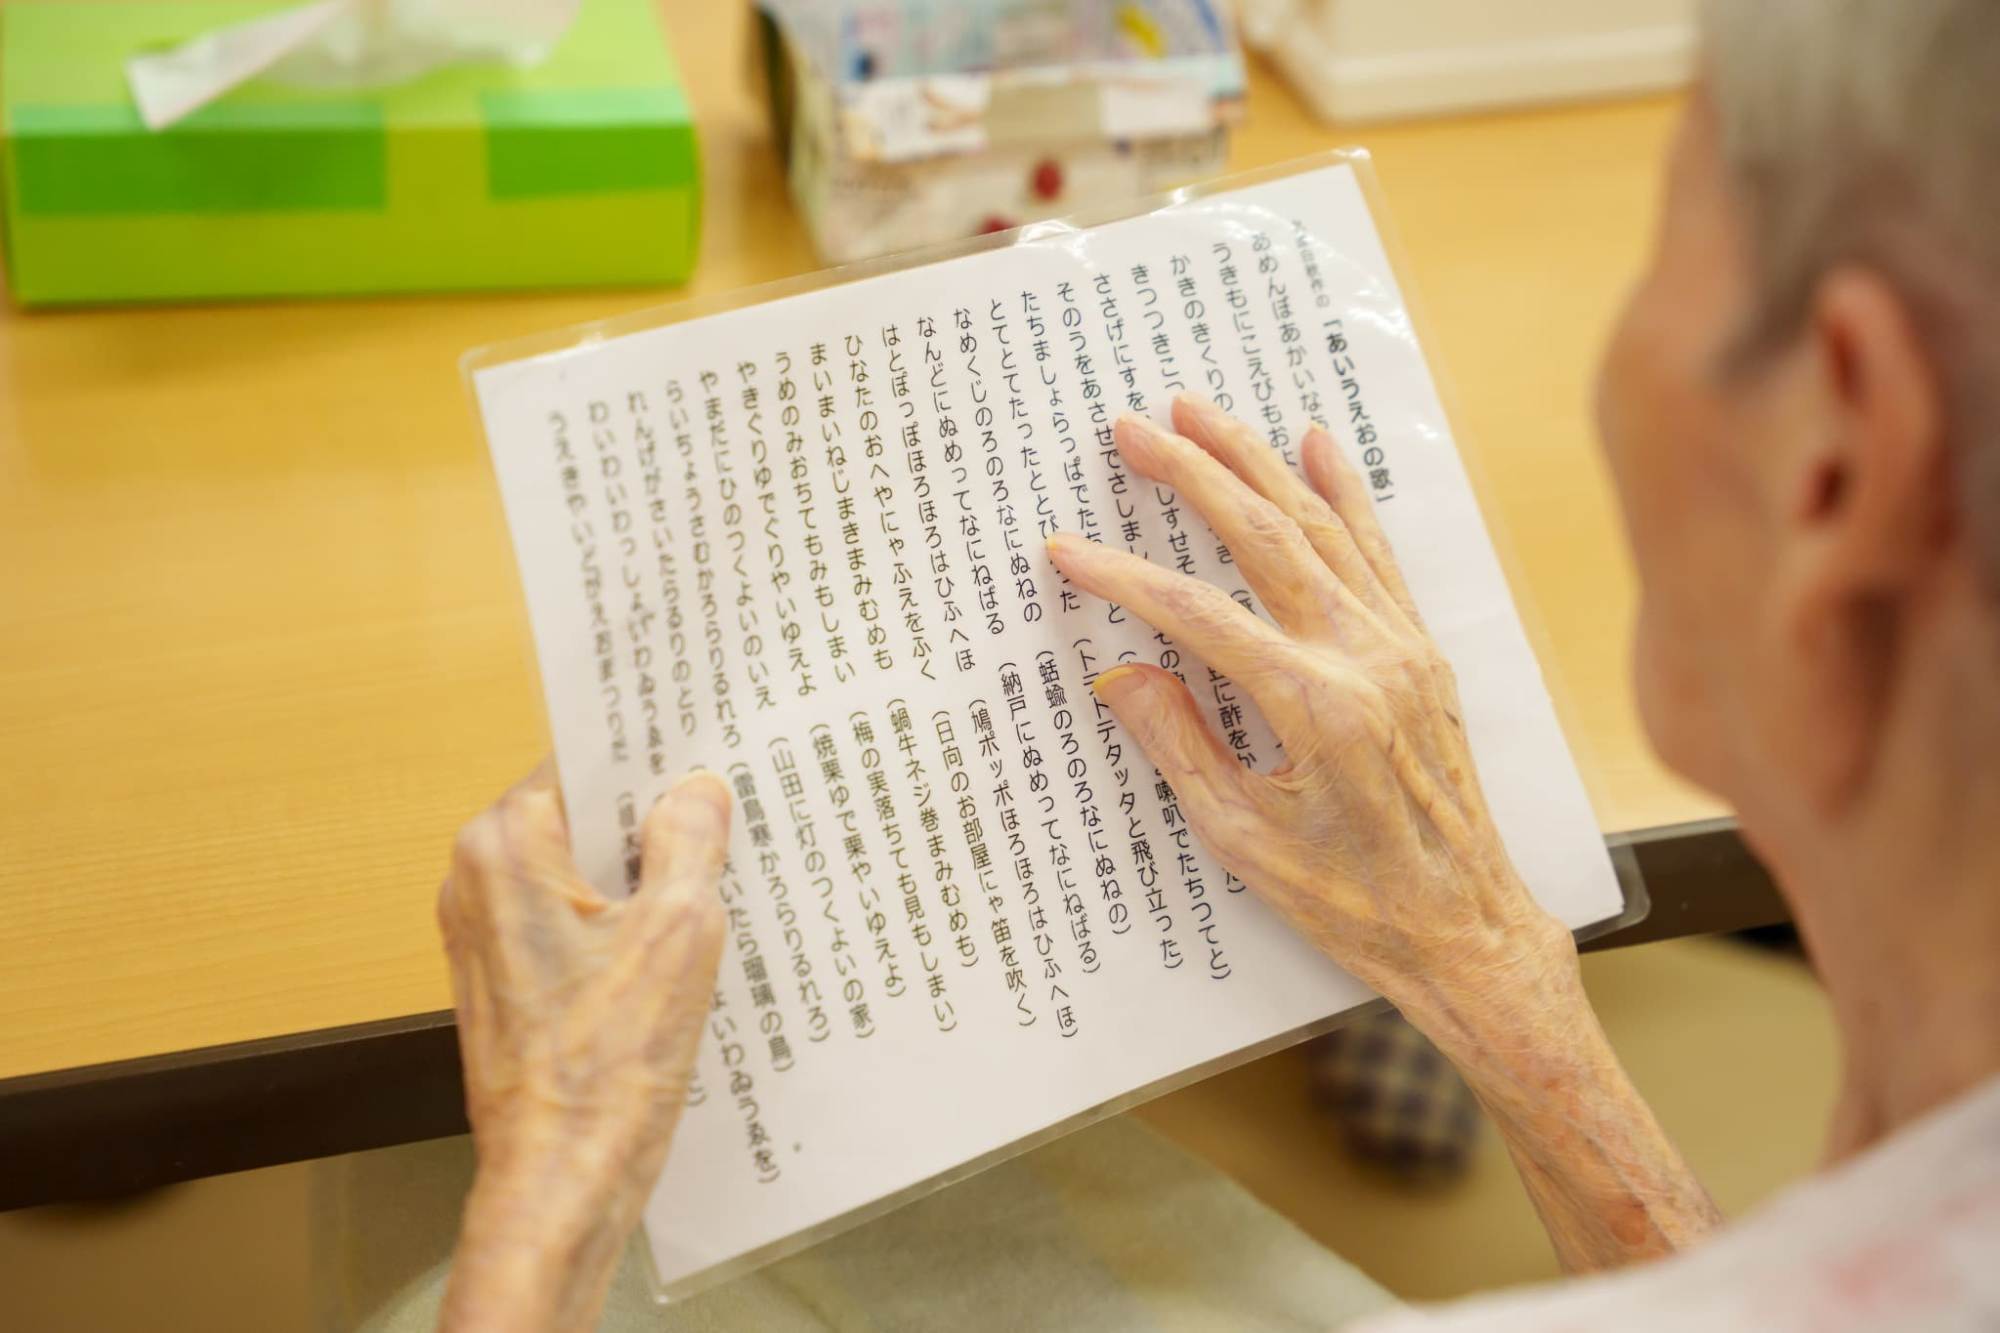 白秋作の「あいうえおの歌」
あめんぼあかいな
うきもにこえびもおよ
かきのきくりの
きつつきこつ
ささげにすを しすせそ に酢をか
そのうをあさせでさしまし その
たちましょらっぱでたち と 喇叭でたちつてと)
とてとてたったととび った (トテトテタッタと飛び立った)
なめくじのろのろなにぬねの (蛞蝓のろのろなにぬねの)
なんどにぬめってなにねばる (納戸にぬめってなにねばる)
はとぽっぽほろほろはひふへほ (鳩ポッポほろほろはひふへほ)
ひなたのおへやにゃふえをふく (日向のお部屋にゃ笛を吹く)
まいまいねじまきまみむめも (蝸牛ネジ巻まみむめも)
うめのみおちてもみもしまい (梅の実落ちても見もしまい)
やきぐりゆでぐりやいゆえよ (焼栗ゆで栗やいゆえよ)
やまだにひのつくよいのいえ (山田に灯のつくよいの家)
らいちょうさむかろらりるれろ (雷鳥寒かろらりるれろ)
れんげがさいたらるりのとり いたら瑠璃の鳥)
わいわいわっしょいわゐうゑを よいわゐうゑを)
うえきやいどがえおまつりだ (植木屋